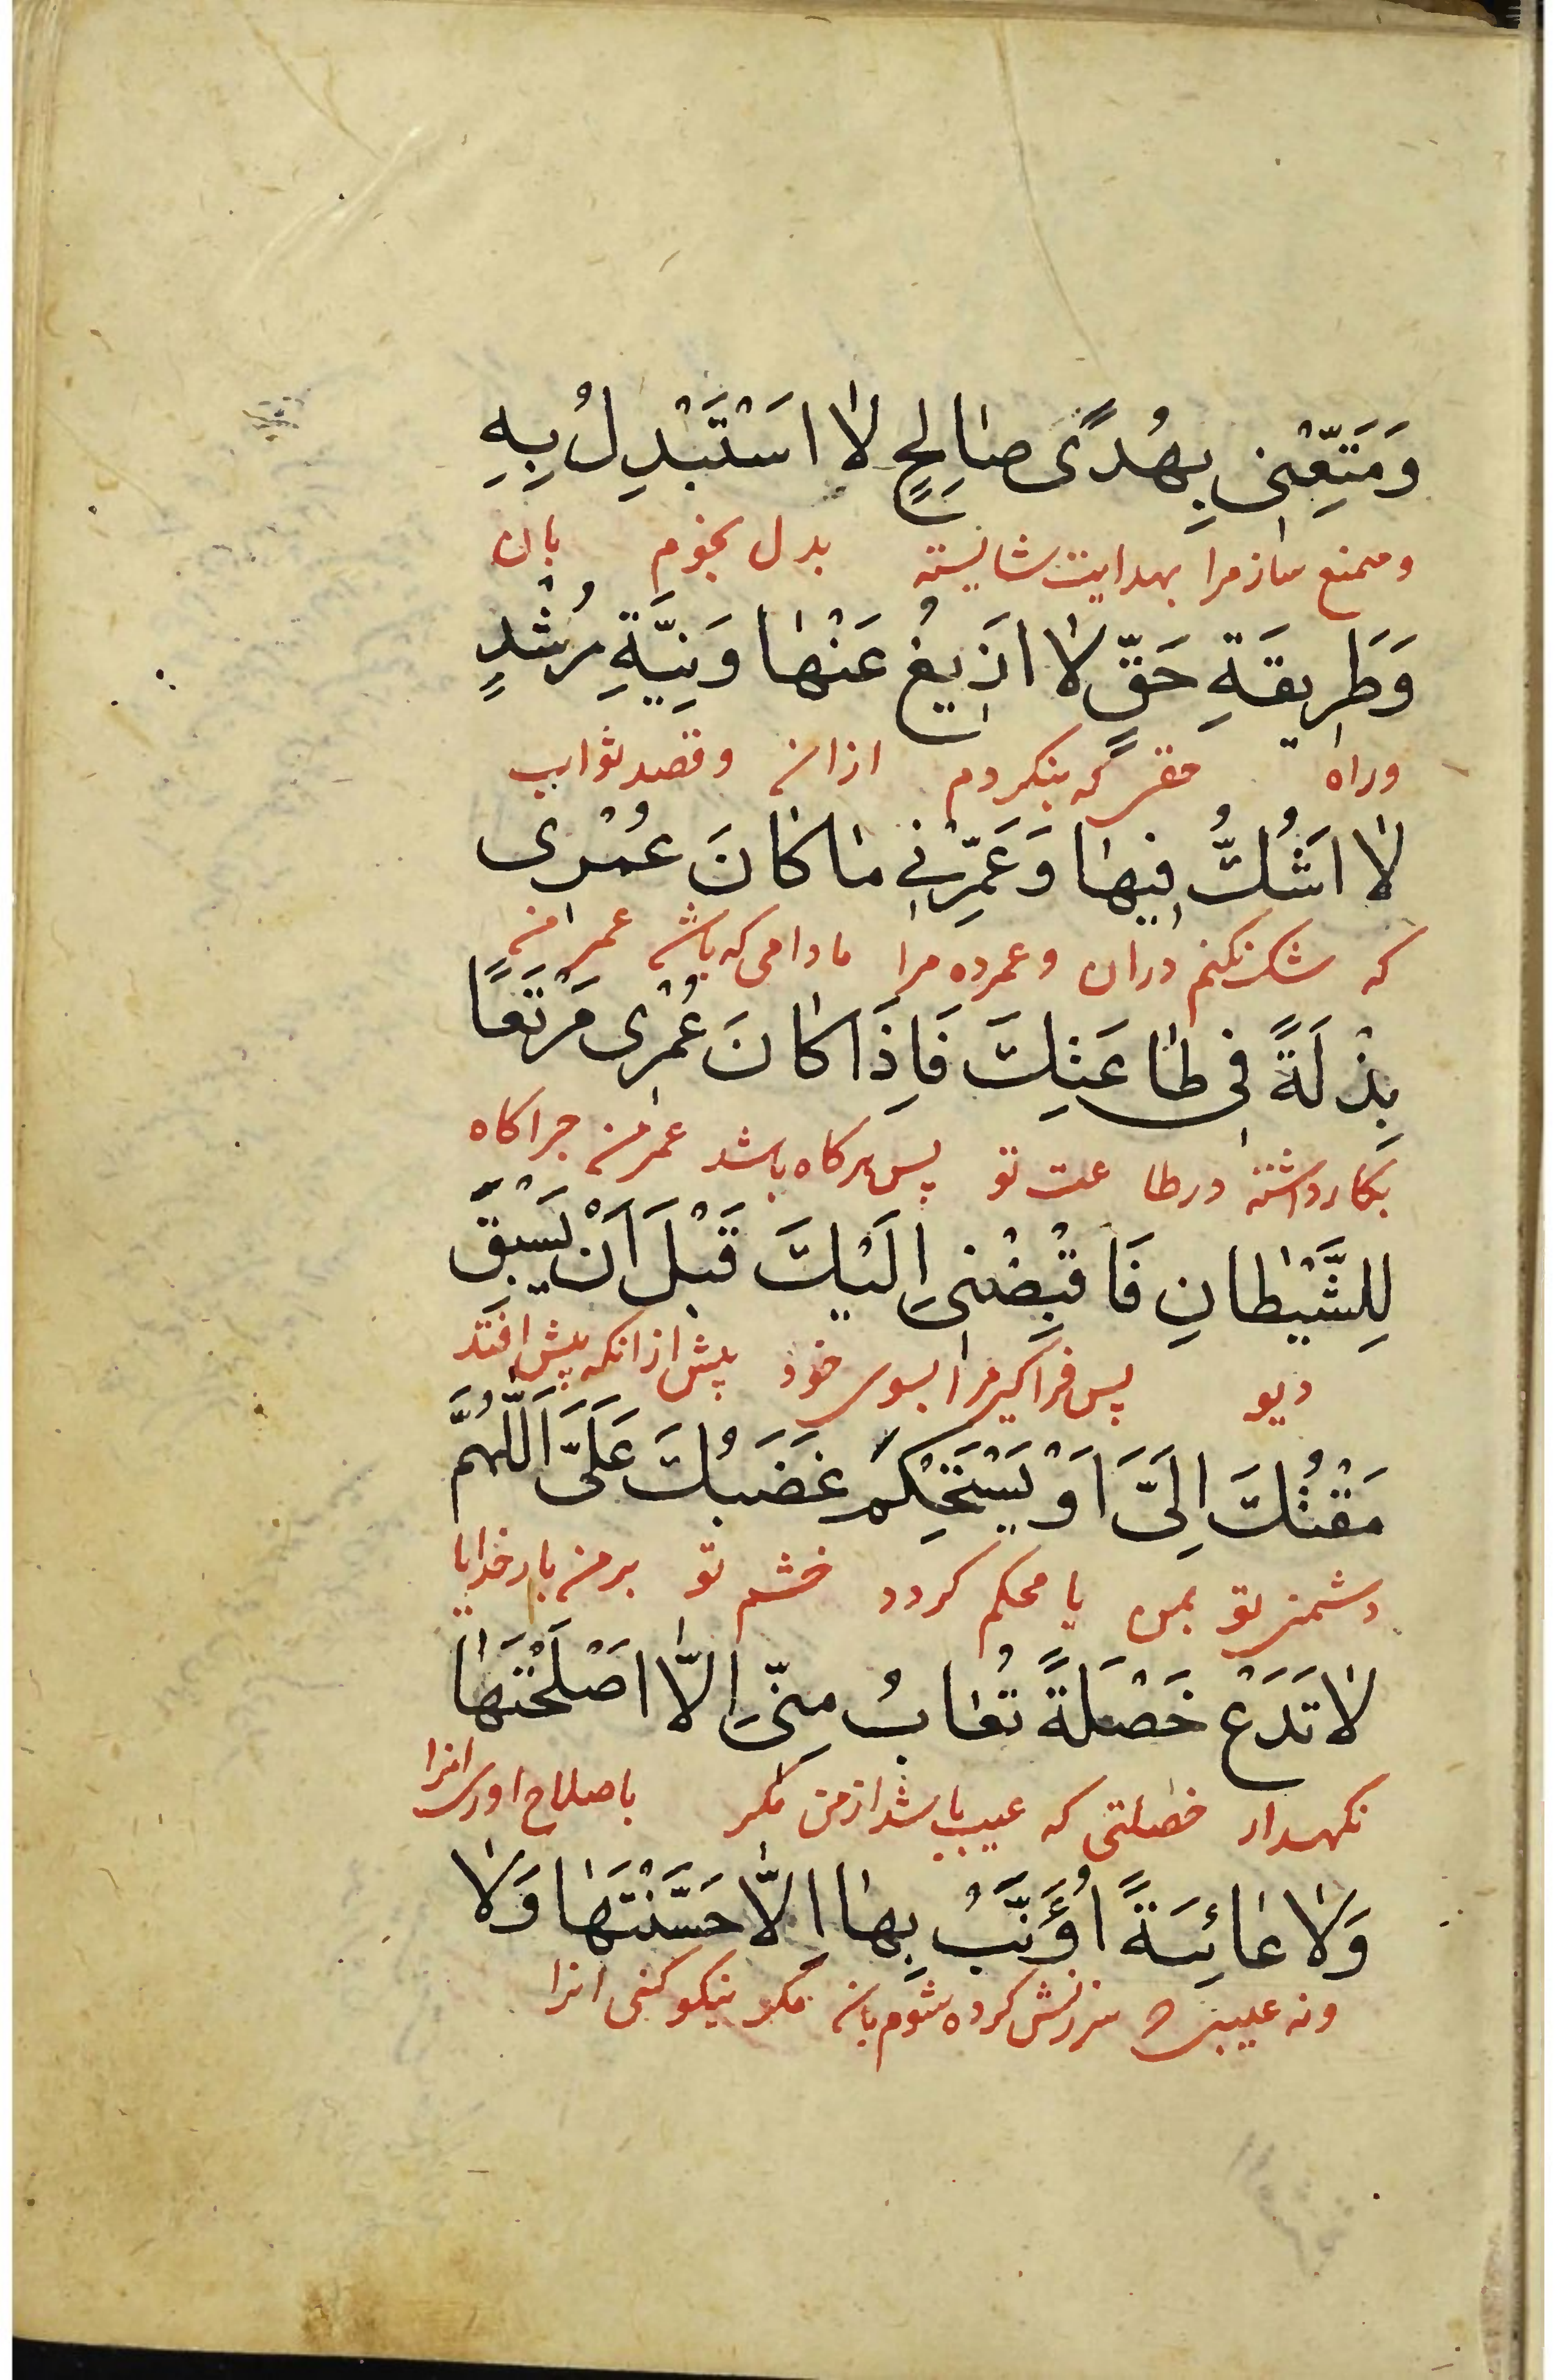 وَمَتِّعْنى بِهُدًى صٰالِحٍ لٰا اَسْتَبْدِلُ بِهِ
ومتمتع ساز مرا بهدایت شایسته بدل نجویم بان
وَطَرِيقَةِ حَقٍّ لٰا اَزيغُ عَنْهٰا وَنِيَّةِ رُشْدٍ
وراه حقی که بنکردم ازان وقصد ثواب
لٰا اَشُكُّ فيهٰا وَعَمِّرْنى مٰا كٰانَ عُمْرى
که شک نکنم دران وعمرده مرا مادامی که باشد عمر من
بِذْلَةً فى طٰاعَتِكَ فَاِذَا كٰانَ عُمْرى مَرْتَعًا
بکار داشته در طاعت تو پس هرکاه باشد عمر من چراکاه
لِلشَّيْطٰانِ فَاقْبِضْنى اِلَيْكَ قَبْلَ اَنْ يَسْبِقَ
دیو پس فراکیر مرا بسوی خود پیش ازانکه پیش افتد
مَقْتُكَ اِلَىَّ اَوْ يَسْتَحْكِمَ غَضَبُكَ عَلَىَّ اَللّٰهُمَّ
دشمنی تو بمن یا محکم کردد خشم تو بر من بار خدایا
لٰا تَدَعْ خَصْلَةً تُعٰابُ مِنّى اِلّٰا اَصْلَحْتَهٰا
نکهدار خصلتی که عیب باشد از من مکر باصلاح اوری انرا
وَلٰا عٰائِبَةً اُؤَنَّبُ بِهٰا اِلّٰا حَسَّنْتَهٰا وَلٰا
ونه عیبی سرزنش کرده شوم بان مکر نیکو کنی انرا